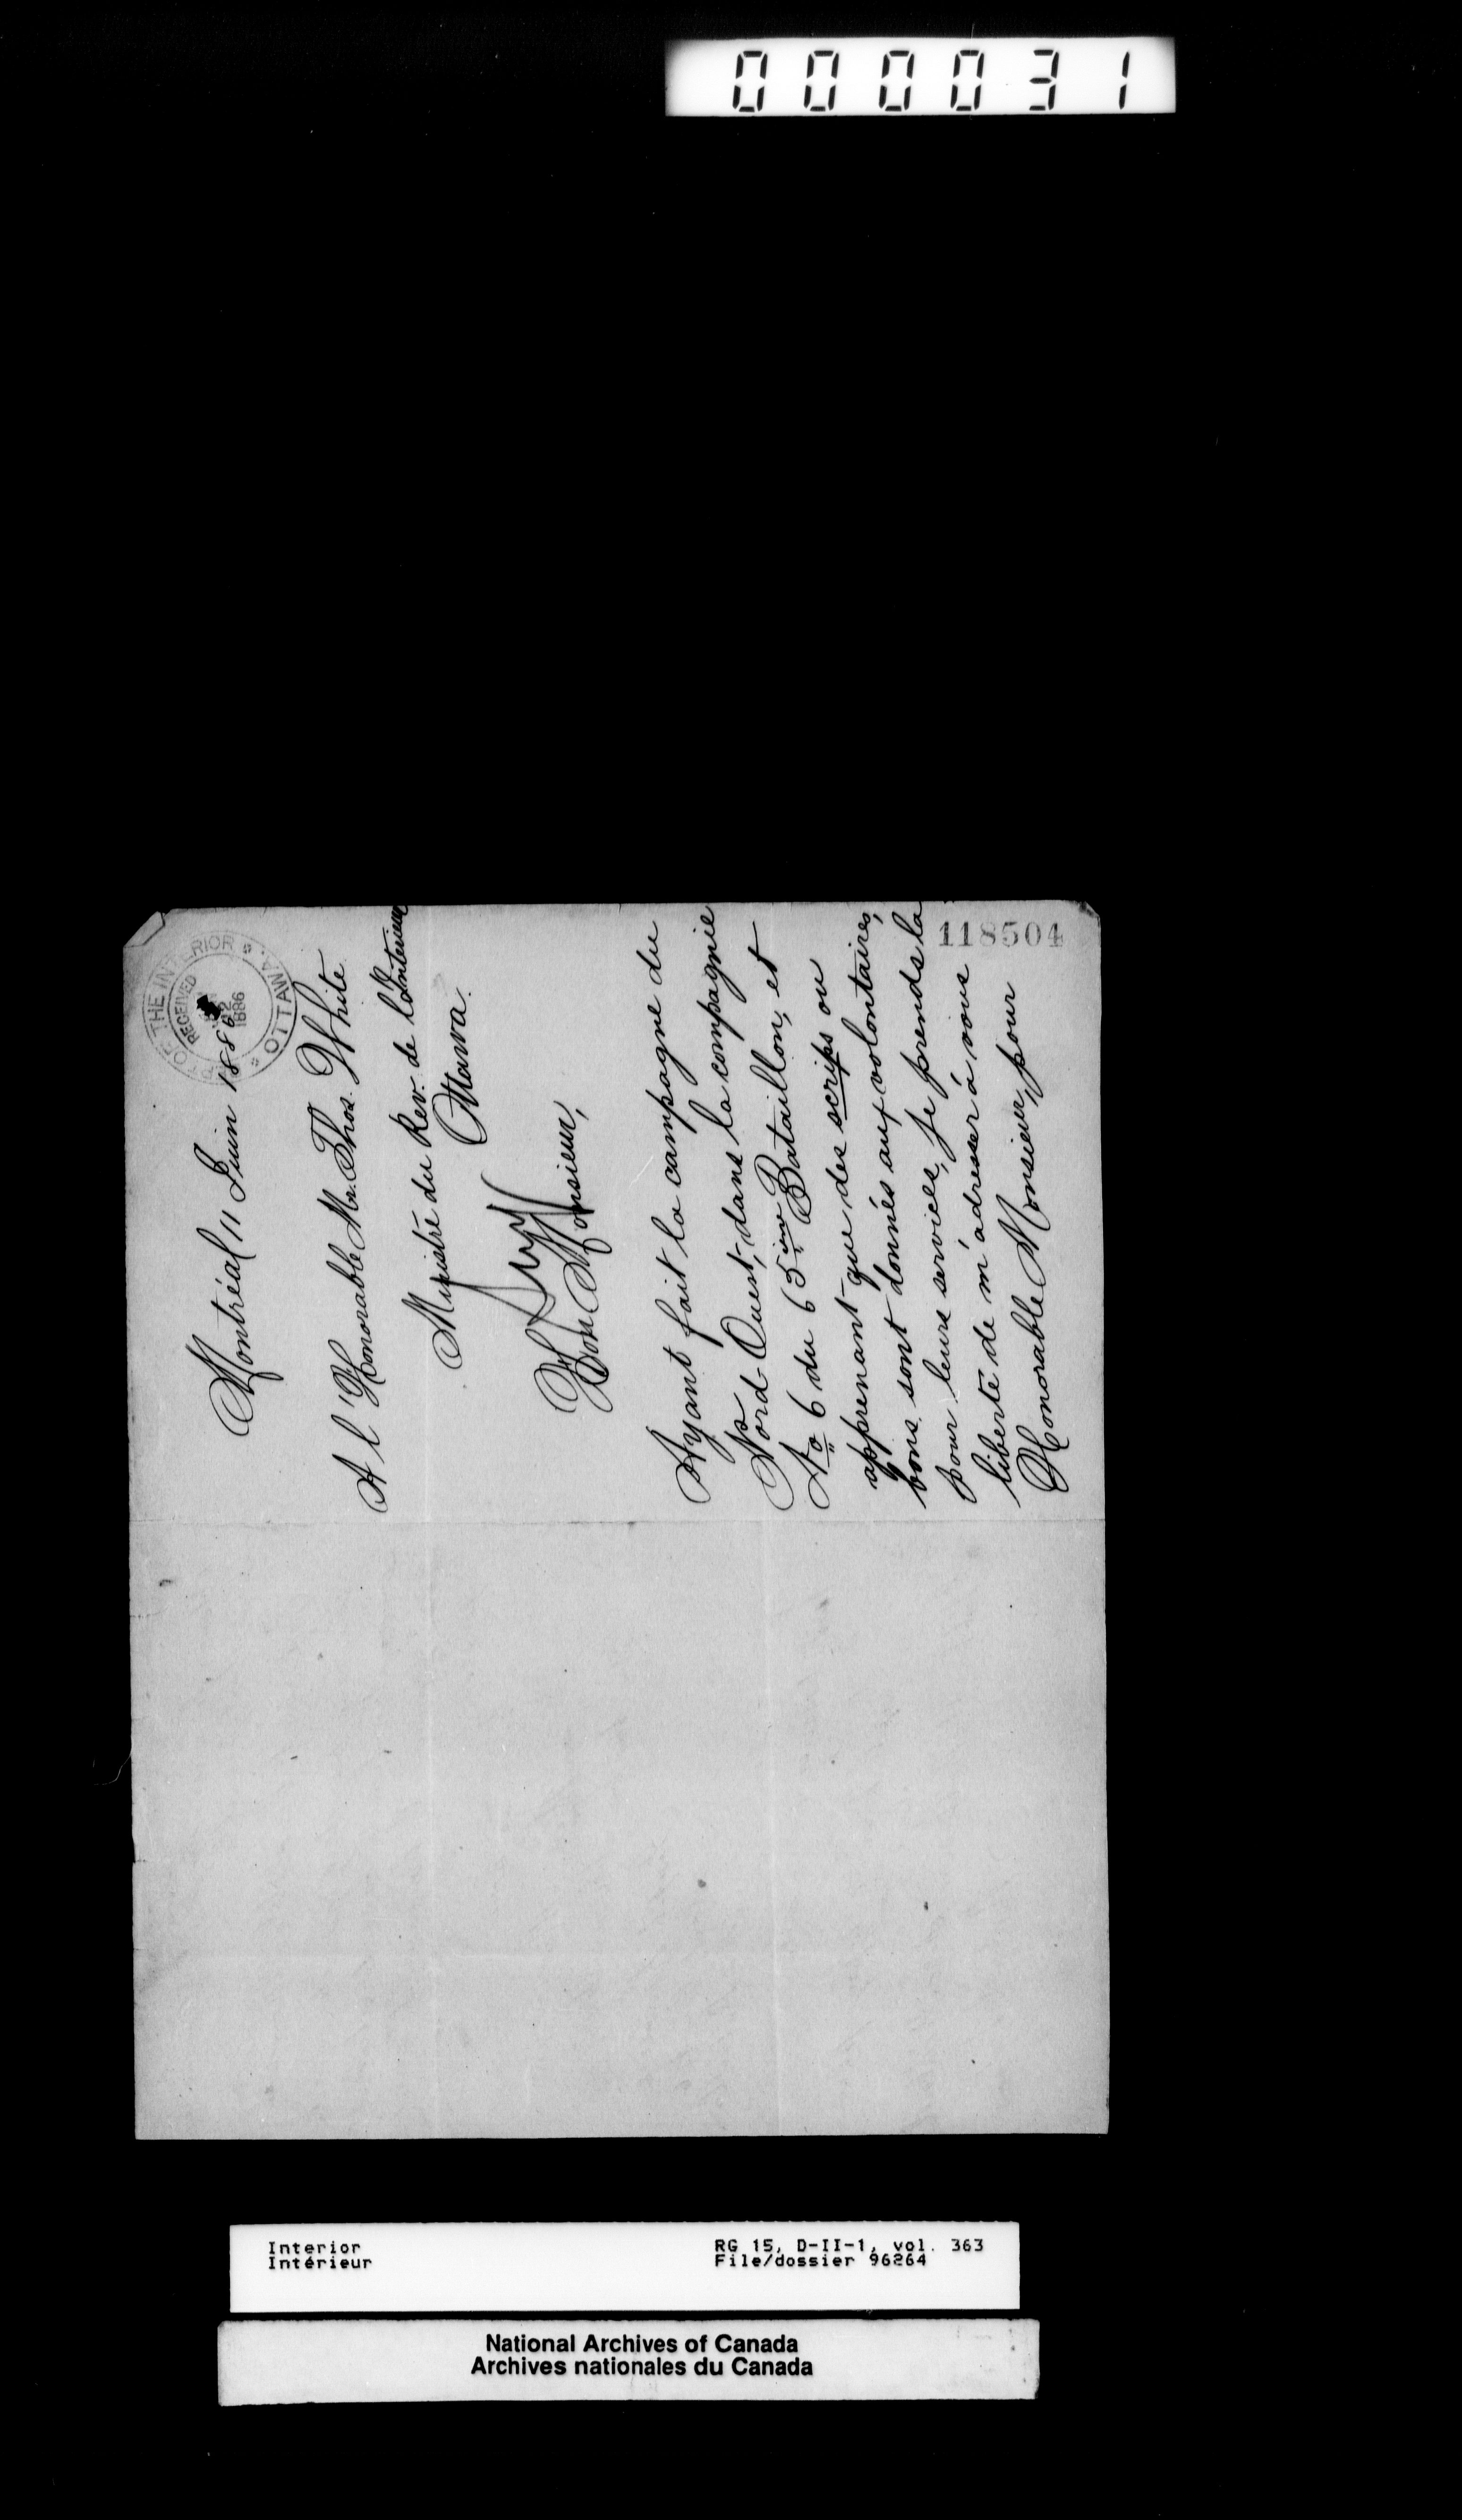 000031
DEPT OF THE INTERIOR
RECEIVED
12
1886
OTTAWA
118504
Montréal 11 Juin 1886
A l'Honorable Mr. Thos. White
Ministre du Rev. de l'Interieur
Ottawa.
Hon Monsieur,
Ayant fait la campagne du
Nord-Ouest, dans la compagnie
No 6 du 65ième Bataillon, et
apprenant que des scrips ou
bons sont donnés aux volontaires,
pour leurs services, je prends la
liberté de m'adresser à vous
Honorable Monsieur, pour
Interior
Intérieur
RG 15, D-II-1, vol. 363
File/dossier 96264
National Archives of Canada
Archives nationales du Canada